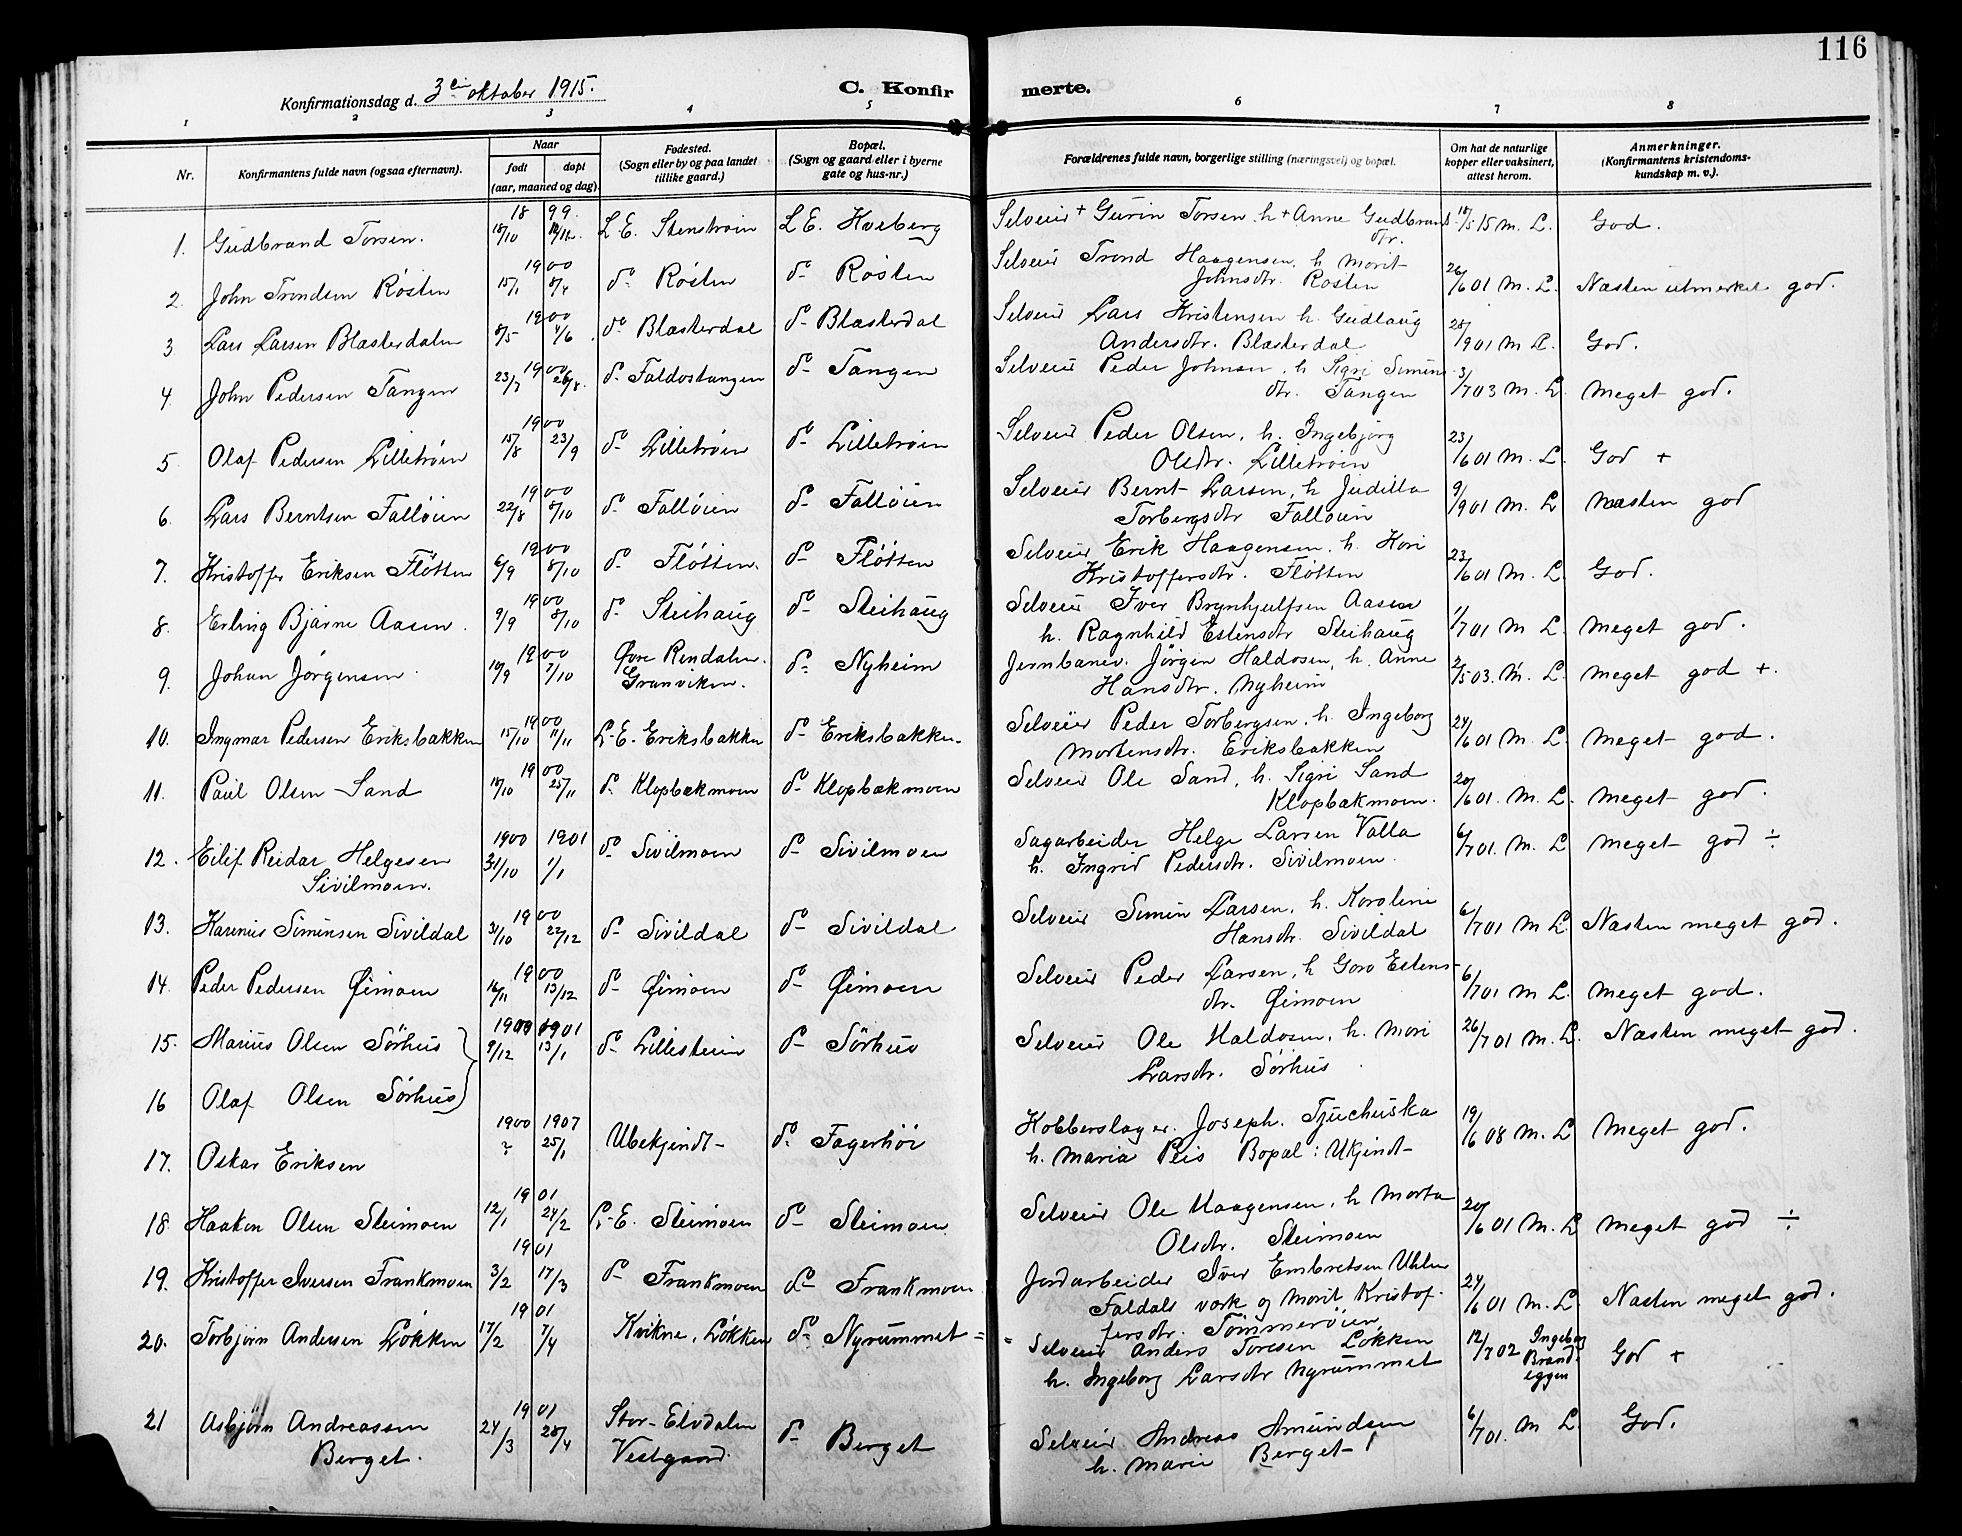 116
Konfirmationsdag d. 3die oktober 1915.
C. Konfirmerte.
1 2 3 4 5 6 7 8
Nr.
Konfirmantens fulde navn (ogsaa efternavn).
Naar
født
døpt
(aar, maaned og dag).
Fødested.
(Sogn eller by og paa landet
tillike gaard.)
Bopæl.
(Sogn og gaard eller i byerne
gate og hus-nr.)
Forældrenes fulde navn, borgerlige stilling (næringsvei) og bopæl.
Om hat de naturlige
kopper eller vaksinert,
attest herom.
Anmerkninger.
(Konfirmantens kristendoms-
kundskap m. v.).
1. Gudbrand Torsen. 1899 18/10 L. E. Stenstrøin L. E. Hveberg Selveier + Gurin Torsen h + Anne Gudbrands 15 M. L. God.
dtr.
2. John Trondsen Røsten 1900 15/1 8/4 do Røsten do Røsten Selveier Trond Haagensen, h. Marit 26/6 01 M. L. Næsten utmerket god.
Johnsdtr. Røsten
3 Lars Larsen Blæsterdalen 1900 8/5 4/6 do Blæsterdal do Blæsterdal Selveier Lars Kristensen h. Gudlaug 28/9 01 M L. God.
Andersdtr. Blæsterdal
4. John Pedersen Tangen 1900 23/7 26/8 do Faldostangen do Tangen Selveier Peder Johnsen, h. Sigri Simens 3/7 03 M. L. Meget god.
dtr. Tangen
5. Olaf Pedersen Lilletrøen 1900 15/8 23/9 do Lilletrøen do Lilletrøen Selveier Peder Olsen, h. Ingebjørg 23/6 01 M. L. God +
Olsdtr. Lilletrøen
6. Lars Berntsen Falløien 1900 22/8 8/10 do Falløien do Falløien Selveier Bernt Larsen, h Juditta 9/9 01 M. L Næsten god
Torbergsdtr Falløien
7. Kristoffer Eriksen Fløtten 1900 6/9 8/10 do Fløtten. do Fløtten Selveier Erik Haagensen, h. Kari 23/6 01 M. L. God.
Kristoffersdtr. Fløtten
8. Erling Bjarne Aasen. 1900 9/9 8/10 do Steihaug do Steihaug Selveier Iver Brynhjulfsen Aasen 1/7 01 M L. Meget god.
h. Ragnhild Estensdtr Steihaug
9. Johan Jørgensen. 1900 10/9 7/10 Øvre Rendalen. do Nyheim Jernbanev. Jørgen Haldosen, h. Anne 2/5 03. M. L. Meget god +.
Granviken. Hansdtr. Nyheim
10. Ingmar Pedersen Eriksbakken 1900 15/10 11/11 L. E. Eriksbakken do Eriksbakken. Selveier Peder Torbergsen, h. Ingeborg 24/6 01 M. L. Meget god.
Mortensdtr. Eriksbakken
11. Paul Olsen Sand 1900 18/10 25/11 do Klopbækmoen do Klopbækmoen Selveier Ole Sand, h. Sigri Sand 20/6 01. M. L. Meget god.
Klopbækmoen.
12. Eilif Reidar Helgesen 1900 31/10 1901 1/1 do Sivilmoen do Sivilmoen Sagarbeider Helge Larsen Valla 6/7 01. M. L Meget god ÷
Sivilmoen. h. Ingrid Pedersdtr. Sivilmoen.
13. Karenius Simensen Sivildal 1900 31/10 22/12 do Sivildal do Sivildal Selveier Simen Larsen, h. Karoline 6/7 01 M L Næsten meget god.
Hansdtr. Sivildal
14. Peder Pedersen Øimoen 1900 16/11 13/12 do Øimoen do Øimoen Selveier Peder Larsen, h Goro Estens- 6/7 01 M L. Meget god.
dtr. Øimoen
15. Marius Olsen Sørhus 1900 9/12 1901 13/1 do Lillesteien do Sørhus Selveier Ole Haldosen, h. Mari 26/7 01 M. L. Næsten meget god.
Larsdtr. Sørhus
16 Olaf Olsen Sørhus
17. Oskar Eriksen 1900 ? 1907 25/1 Ubekjendt do Fagerhøi Kobberslager. Joseph. h. Maria Peis Bopæl: Ukjendt 19/6 08 M. L Meget god.
18. Haakon Olsen Steimoen 1901 12/1 24/2 L. E. Steimoen do Steimoen Selveier Ole Haagensen, h Marta 20/6 01 M. L Meget god ÷
Olsdtr. Steimoen
19. Kristoffer Iversen Frankmoen 1901 3/2 17/3 do Frankmoen do Frankmoen. Jordarbeider Iver Embretsen Uhlen 24/6 01 M. L. Næsten meget god.
Faldals verk og Marit Kristof-
fersdtr. Tømmerøien
20. Torbjørn Andersen Løkken 1901 17/2 7/4 Kvikne, Løkken do Nyrummet = = Selveier Anders Toresen Løkken 12/7 02 Ingeborg God +
h. Ingeborg Larsdtr Nyrummet Brand-
eggen
21 Asbjørn Andreassen 1901 24/3 28/4 Stor-Elvdalen do Berget Selveier Andreas Amundsen 6/7 01. M L. God.
Berget. Vestgaard. h. Marie Berget